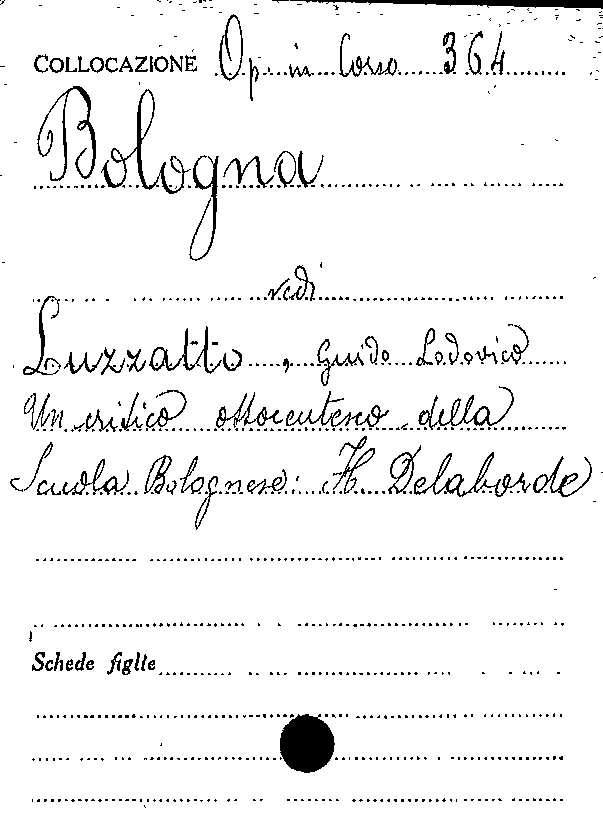 COLLOCAZIONE Op. in Corso 364
Bologna
vedi
Luzzatto, Guido Lodovico
Un critico ottocentesco della
Scuola Bolognese: H. Delaborde
Schede figlie